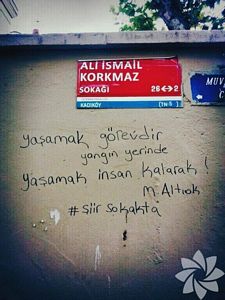 ALİ İSMAİL
KORKMAZ
SOKAĞI 26↔2
KADIKÖY (TN-5)
MUV
yaşamak görevdir
yangın yerinde
yaşamak insan kalarak !
M. Altıok
#şiir sokakta